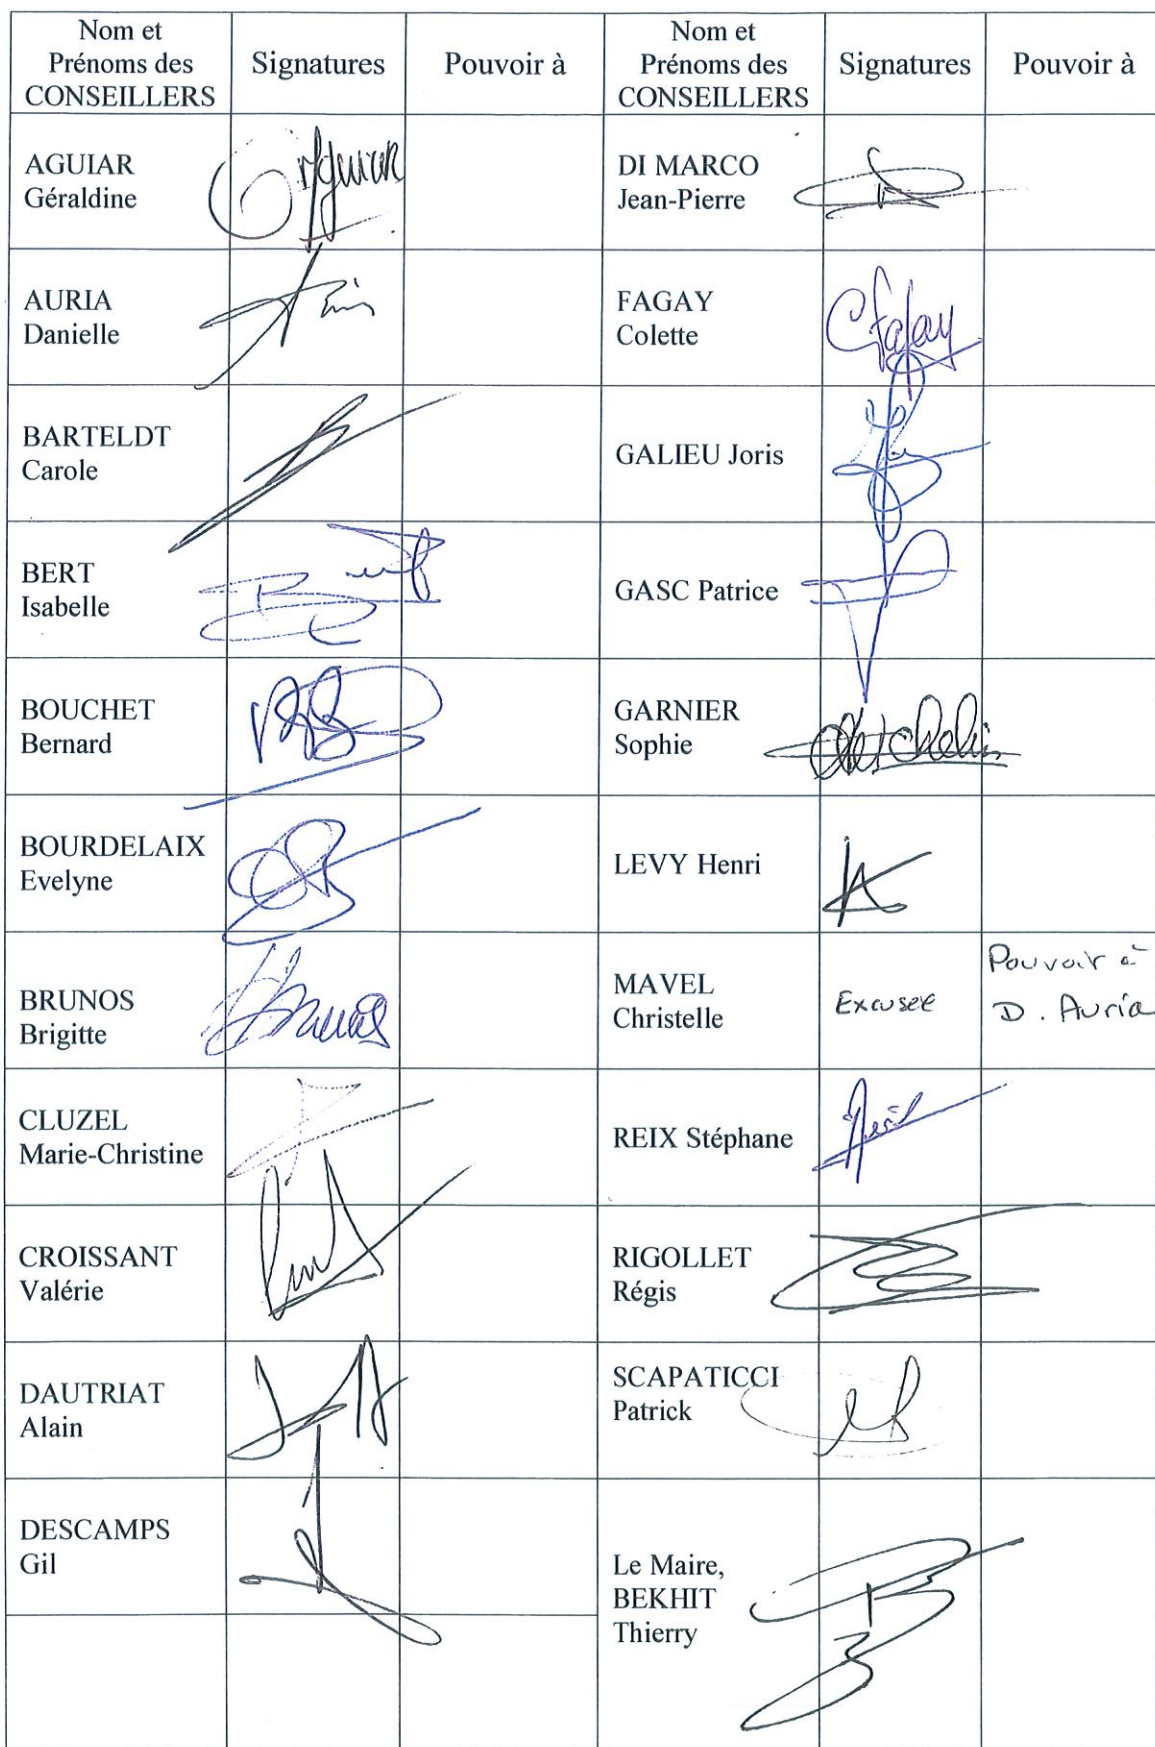 Nom et
Prénoms des
CONSEILLERS
Signatures
Pouvoir à
Nom et
Prénoms des
CONSEILLERS
Signatures
Pouvoir à
AGUIAR
Géraldine
DI MARCO
Jean-Pierre
AURIA
Danielle
FAGAY
Colette
C Fagay
BARTELDT
Carole
GALIEU Joris
BERT
Isabelle
GASC Patrice
BOUCHET
Bernard
GARNIER
Sophie
BOURDELAIX
Evelyne
LEVY Henri
BRUNOS
Brigitte
MAVEL
Christelle
Excusée
Pouvoir à
D. Auria
CLUZEL
Marie-Christine
REIX Stéphane
CROISSANT
Valérie
RIGOLLET
Régis
DAUTRIAT
Alain
SCAPATICCI
Patrick
DESCAMPS
Gil
Le Maire,
BEKHIT
Thierry